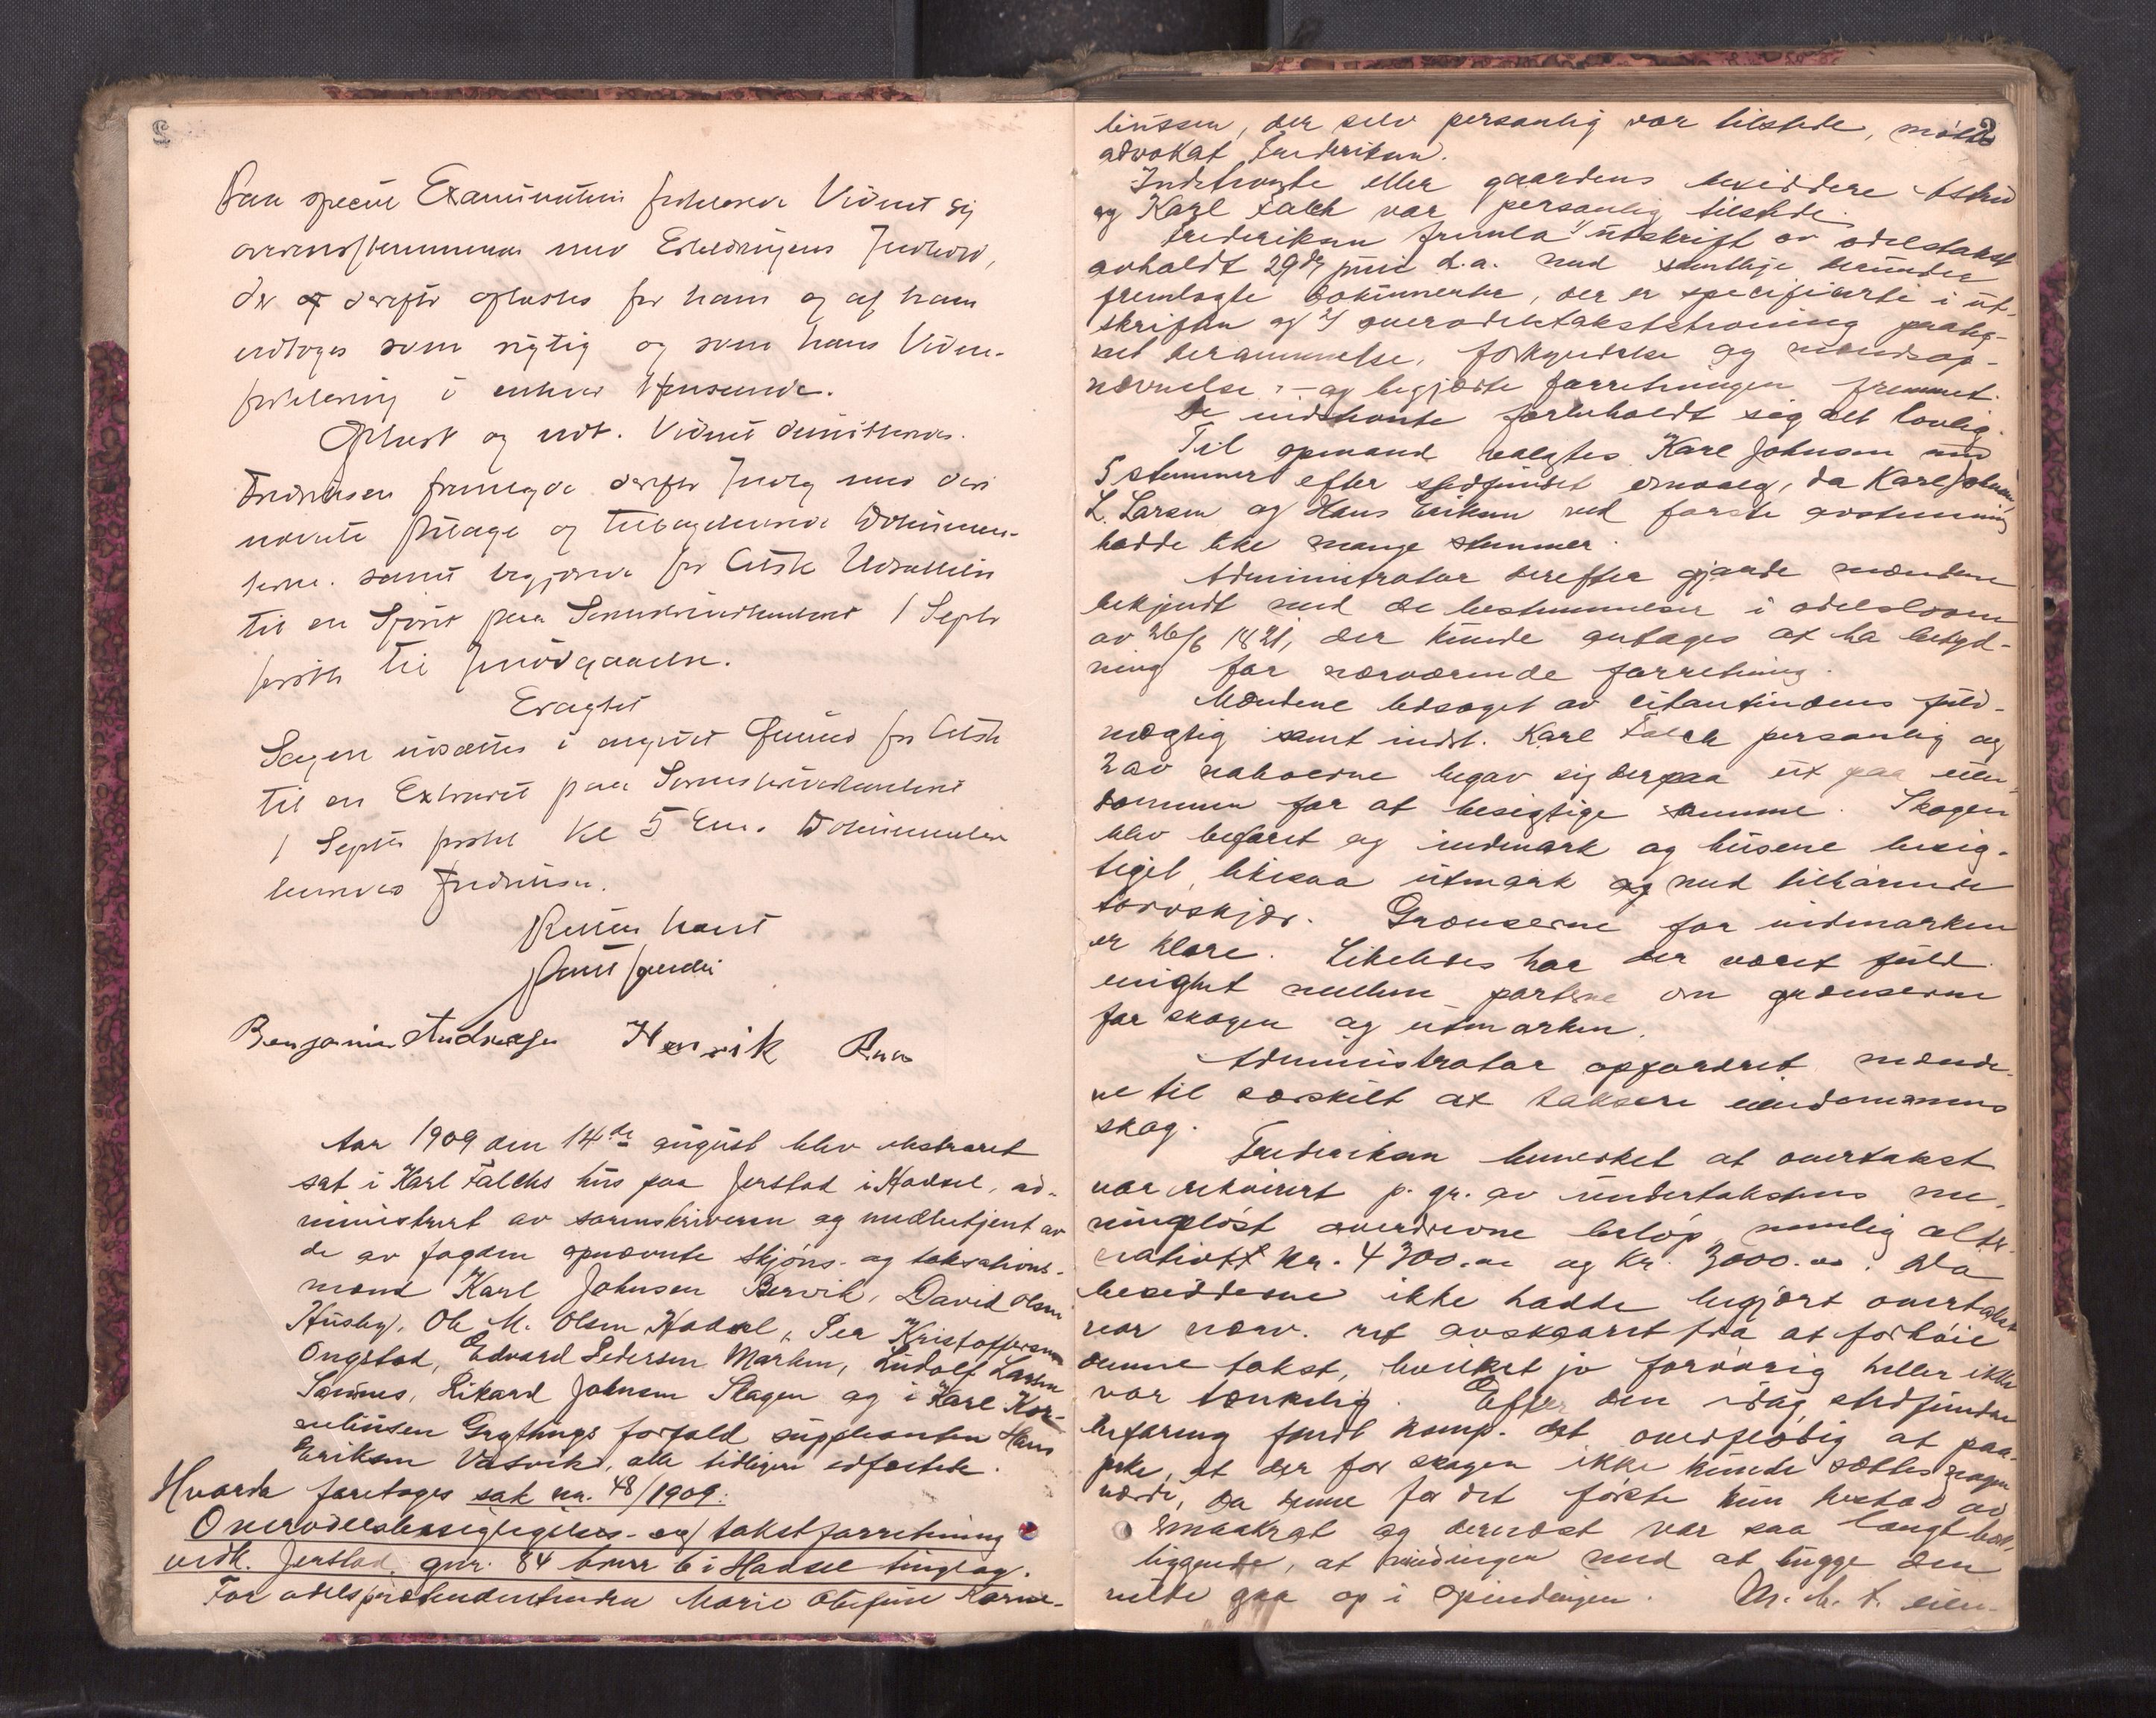 Paa speciel Examination forklarede Vidnet sig
overensstemmende med Erklæringens Indhold,
der derefter oplæstes for ham og af ham
vedtoges som rigtig og som hans Vidne-
forklaring i enhver Henseende.
Oplæst og vedt. Vidnet dimitteredes.
Fredriksen fremlagde derefter Indlæg med deri
nævnte Bilage og tilbageleverede Dokumen-
terne. samt begjærede for Citst. Udsættelse
til en paa Sorenskriverkontoret 1 Septr
førstk. til
Eragtet
Sagen udsættes i angivet Øiemed for Citst.
til en Extraret paa Sorenskriverkontoret
1 Septbr førstk Kl 5 Em. Dokumenterne
leveredes Fredriksen.
Retten hævet
Benjamin Andreassen Henrik
Aar 1909 den 14de august blev ekstraret
sat i Karl Falchs hus paa Jerstad i Hadsel, ad-
ministrert av sorenskriveren og medbetjent av
de av fogden opnævnte skjöns- og taksations-
mænd Karl Johnsen Bervik, David Olsen
Husby, Ole M. Olsen Hadsel, Per Kristoffersen
Ongstad, Edvard Pedersen Marken, Ludolf Larsen
Sannes, Rikard Johnsen Stagen og i Karl Kor-
neliussen Grytings forfald supplianten Hans
Eriksen Vasvik, alle tidligere edfæstede.
Hvorda foretoges sak nr. 48/1909:
Overodelsbesigtigelses- og takstforretning
vedk. Jerstad, gnr. 84 bnrr 6 i Hadsel tinglag.
For odelsprætendentinden Marie Olufine Korne-
2
liussen, der selv personlig var tilstede, mötte
advokat Frederiksen.
Indstevnte eller gaardens besiddere Astrid
og Karl Falch var personlig tilstede.
Frederiksen fremla 1/ utskrift av odelstakst
avholdt 29de juni d.a. med samtlige derunder
fremlagte dokumenter, der er specificerte i ut-
skriften og 2/ overodelstakststevning paateg-
net berammelse, forkyndelse og mændsop-
nævnelse – og begjærte forretningen fremmet.
De indstevnte forbeholdt sig alt lovlig.
Til opmand valgtes Karl Johnsen med
5 stemmer efter stedfundet omvalg, da Karl Johnsen,
L. Larsen og Hans Eriksen ved første avstemning
hadde like mange stemmer.
Administrator derefter gjorde mændene
bekjendt med de bestemmelser i odelsloven
av 26/6 1821, der kunde antages at ha betyd-
ning for nærværende forretning.
Mændene ledsaget av citantindens fuld-
mægtig samt indst. Karl Falch personlig og
2 av naboerne begav sig derpaa ut paa eien-
dommen for at besigtige samme. Skogen
blev befaret og indmark og husene besig-
tiget, likesaa utmark og med tilhørende
torvskjær. Grænserne for indmarken
er klare. Likeledes har der været fuld
enighet mellem parterne om grænserne
for skogen og utmarken.
Administrator opfordret mænde-
ne til særskilt at taksere eiendommens
skog.
Frederiksen bemerket at overtakst
var rekvirert p. gr. av undertakstens me-
ningslöst overdrevne belöp, nemlig alter-
nativt kr. 4300.00 og kr. 3000.00. Da
besidderne ikke hadde begjært overtakst
var nærv. ret avskaaret fra at forhöie
denne takst, hvilket jo forövrig heller ikke
var tænkelig. Efter den idag stedfundne
befaring fandt komp. det overflödig at paa-
peke, at der for skogen ikke kunde sættes nogen
værdi, da denne for det første kun bestod av
smaakrat og dernæst var saa langt bort-
liggende, at vindingen med at hugge den
vilde gaa op i spindingen. M. h. t. eien-